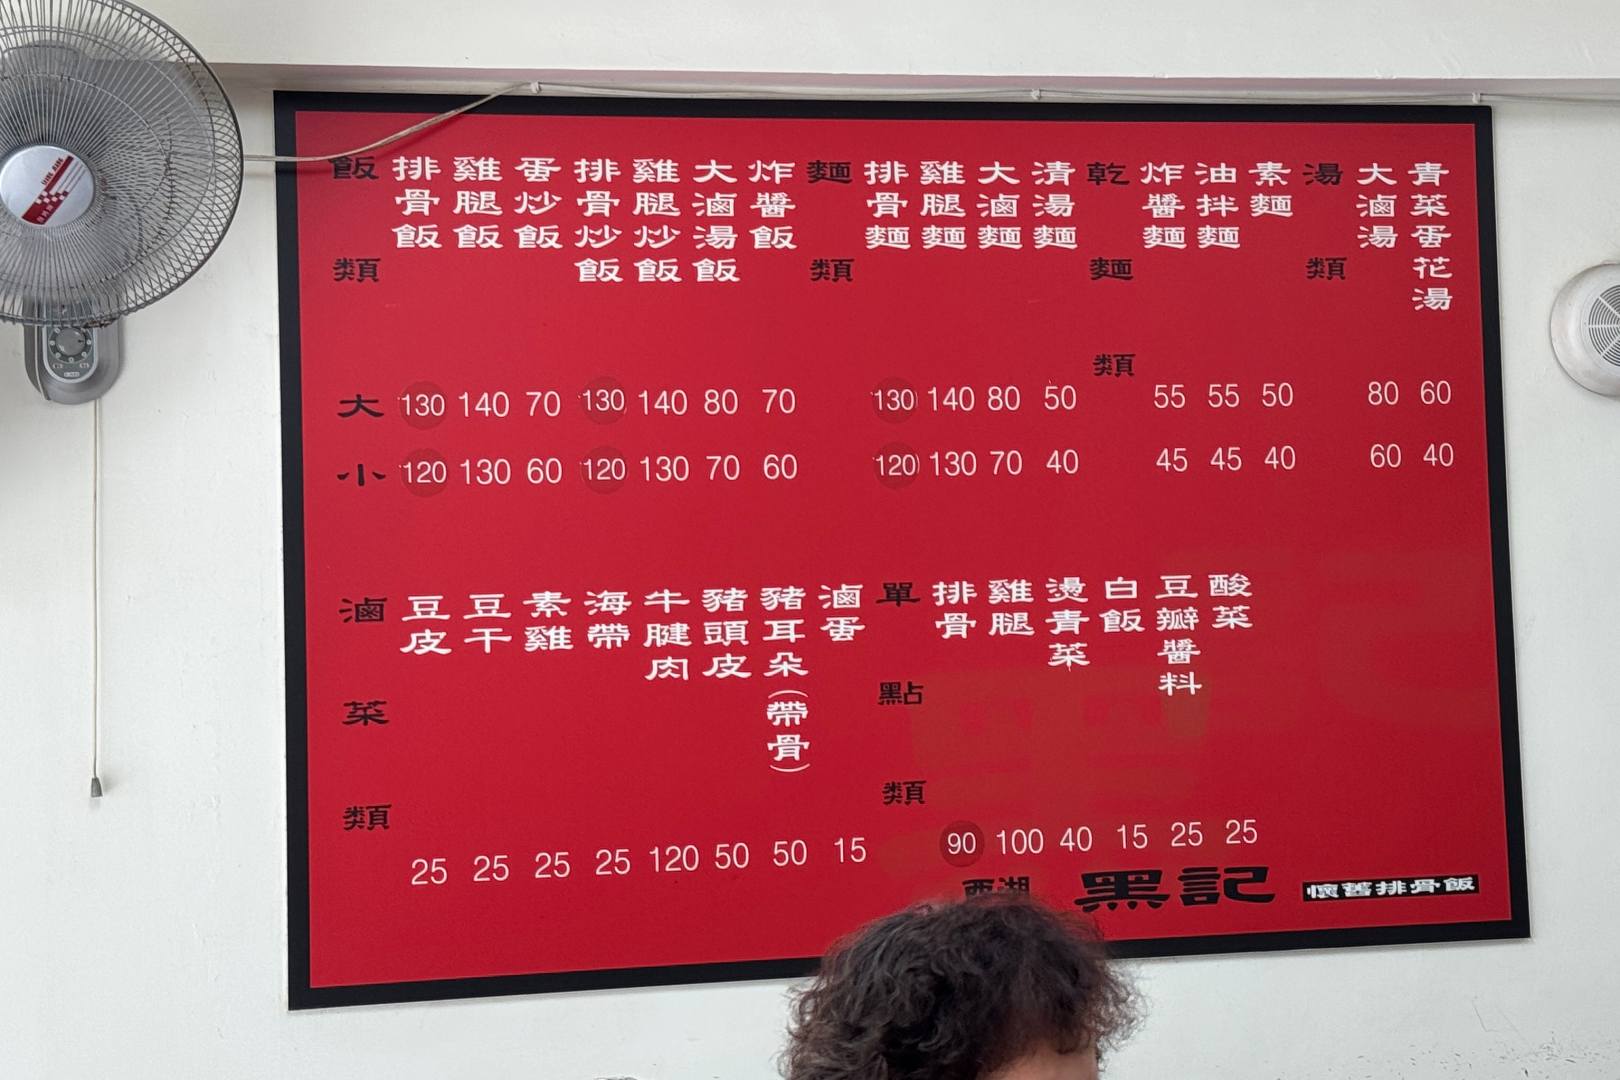 飯類
排骨飯
雞腿飯
蛋炒飯
排骨炒飯
雞腿炒飯
大滷湯飯
炸醬飯
麵類
排骨麵
雞腿麵
大滷麵
清湯麵
乾麵類
炸醬麵
油拌麵
素麵
湯類
大滷湯
青菜蛋花湯
大 130 140 70 130 140 80 70 130 140 80 50 55 55 50 80 60
小 120 130 60 120 130 70 60 120 130 70 40 45 45 40 60 40
滷菜類
豆皮
豆干
素雞
海帶
牛腱肉
豬頭皮
豬耳朵(帶骨)
滷蛋
25 25 25 25 120 50 50 15
單點類
排骨
雞腿
燙青菜
白飯
豆瓣醬料
酸菜
90 100 40 15 25 25
西湖 黑記 懷舊排骨飯